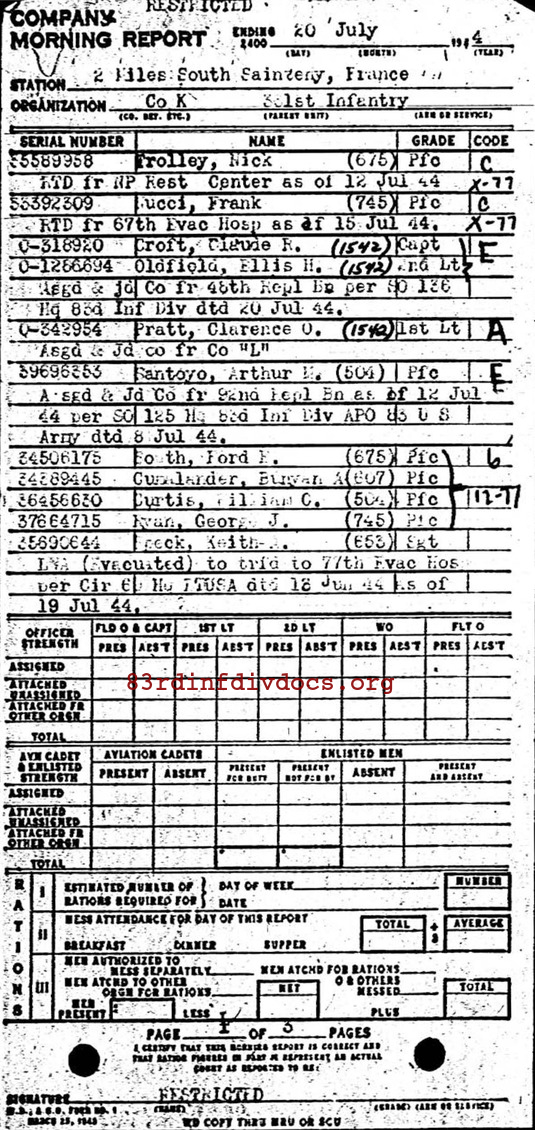 RESTRICTED
COMPANY
MORNING REPORT ENDING 2400 20 July 1944
(DAY) (MONTH) (YEAR)
STATION 2 Miles South Sainteny, France
ORGANIZATION Co K 331st Infantry
(CO. DET. ETC.) (PARENT UNIT) (ARM OR SERVICE)
SERIAL NUMBER NAME GRADE CODE
35589958 Trolley, Nick (675) Pfc C
RTD fr NP Rest Center as of 12 Jul 44 X-77
33392309 Lucci, Frank (745) Pfc C
RTD fr 67th Evac Hosp as of 15 Jul 44. X-77
O-318920 Croft, Claude R. (1542) Capt E
O-1286694 Oldfield, Ellis H. (1542) 2nd Lt
Asgd & jd Co fr 48th Repl Bn per SO 136
Hq 83d Inf Div dtd 20 Jul 44.
O-342954 Pratt, Clarence O. (1542) 1st Lt A
Asgd & Jd co fr Co "L"
39696353 Santoyo, Arthur (504) Pfc E
Asgd & Jd Co fr 92nd Repl Bn as of 12 Jul
44 per SO 125 Hq 83d Inf Div APO 83 U S
Army dtd 8 Jul 44.
34506175 Ford (675) Pfc 6
34389445 (607) Pfc
36456630 Curtis, William C. (504) Pfc 12-77
37664715 Ryan, George J. (745) Pfc
35690644 Keith (653) Sgt
LWA (Evacuated) to trfd to 77th Evac Hos
per Cir 69 Hq ETUSA dtd 13 Jun 44 as of
19 Jul 44.
OFFICER STRENGTH FLD O & CAPT 1ST LT 2D LT WO FLT O
PRES ABS'T PRES ABS'T PRES ABS'T PRES ABS'T PRES ABS'T
ASSIGNED
ATTACHED UNASSIGNED
83rdinfdivdocs.org
ATTACHED FR OTHER ORGN
TOTAL
AVN CADET & ENLISTED STRENGTH AVIATION CADETS ENLISTED MEN
PRESENT ABSENT PRESENT FOR DUTY PRESENT NOT FOR DY ABSENT PRESENT AND ABSENT
ASSIGNED
ATTACHED UNASSIGNED
ATTACHED FR OTHER ORGN
TOTAL
RATIONS
I ESTIMATED NUMBER OF RATIONS REQUIRED FOR } DAY OF WEEK DATE NUMBER
II MESS ATTENDANCE FOR DAY OF THIS REPORT TOTAL ÷ 3 AVERAGE
BREAKFAST DINNER SUPPER
III MEN AUTHORIZED TO MESS SEPARATELY MEN ATCHD FOR RATIONS
MEN ATCHD TO OTHER ORGN FOR RATIONS NET O & OTHERS MESSED TOTAL
MEN PRESENT LESS PLUS
PAGE 1 OF 3 PAGES
I CERTIFY THAT THIS MORNING REPORT IS CORRECT AND
THAT RATION FIGURES IN PART III REPRESENT AN ACTUAL
COUNT AS REPORTED TO ME
RESTRICTED
SIGNATURE
(NAME) (GRADE) (ARM OR SERVICE)
W.D., A.G.O. FORM NO. 1
MARCH 25, 1943
WD COPY THRU MRU OR SCU